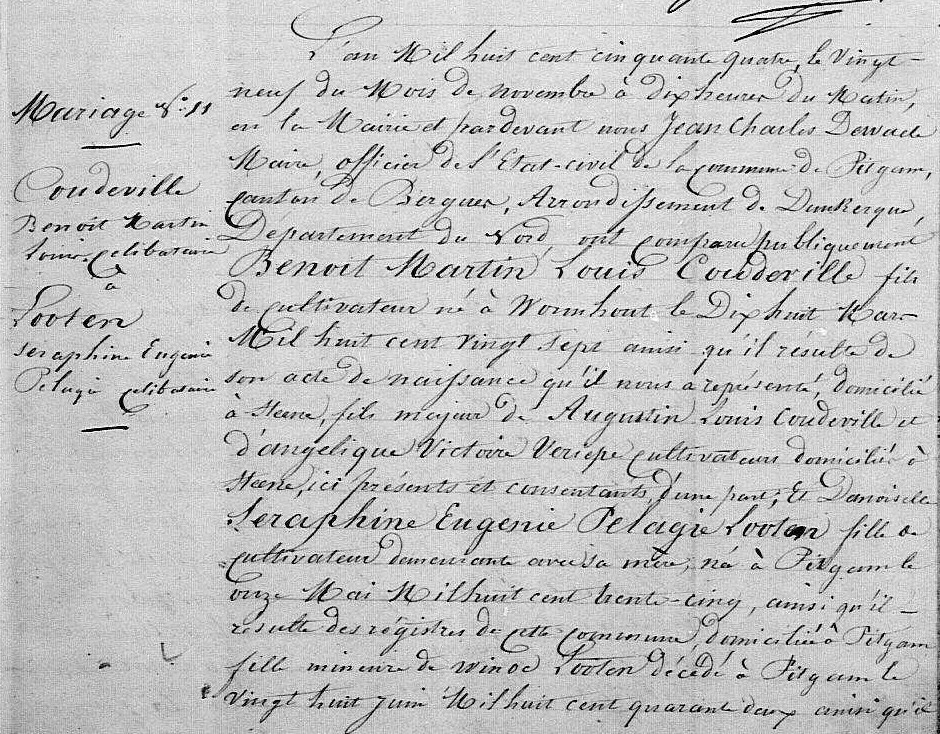 Mariage N.° 11
Coudeville
Benoit Martin
Louis celibataire
à
Looten
Seraphine Eugénie
Pélagie celibataire
L'an Mil huit cent cinquante quatre, le Vingt-
neuf du Mois de novembre à dix heures du Matin,
en la Mairie et pardevant nous Jean Charles Dewaele
Maire, officier de l'Etat-civil de la commune de Pitgam,
canton de Bergues, Arrondissement de Dunkerque,
Département du Nord, ont comparu publiquement
Benoit Martin Louis Coudeville fils
de cultivateur né à Wormhout le Dix huit Mars
Mil huit cent vingt sept ainsi qu'il résulte de
son acte de naissance qu'il nous a représenté, domicilié
à Steene, fils majeur de Augustin Louis Coudeville et
d'angelique Victoire Veriepe cultivateurs domiciliés à
Steene, ici présents et consentants, d'une part; Et Damoiselle
Seraphine Eugenie Pelagie Looten fille de
cultivateur demeurante avec sa mère, né à Pitgam le
onze Mai Mil huit cent trente-cinq, ainsi qu'il -
résulte des régistres de cette commune, domiciliée à Pitgam
fille mineure de Winoc Looten décédé à Pitgam le
vingt huit Juin Mil huit cent quarant deux ainsi qu'il